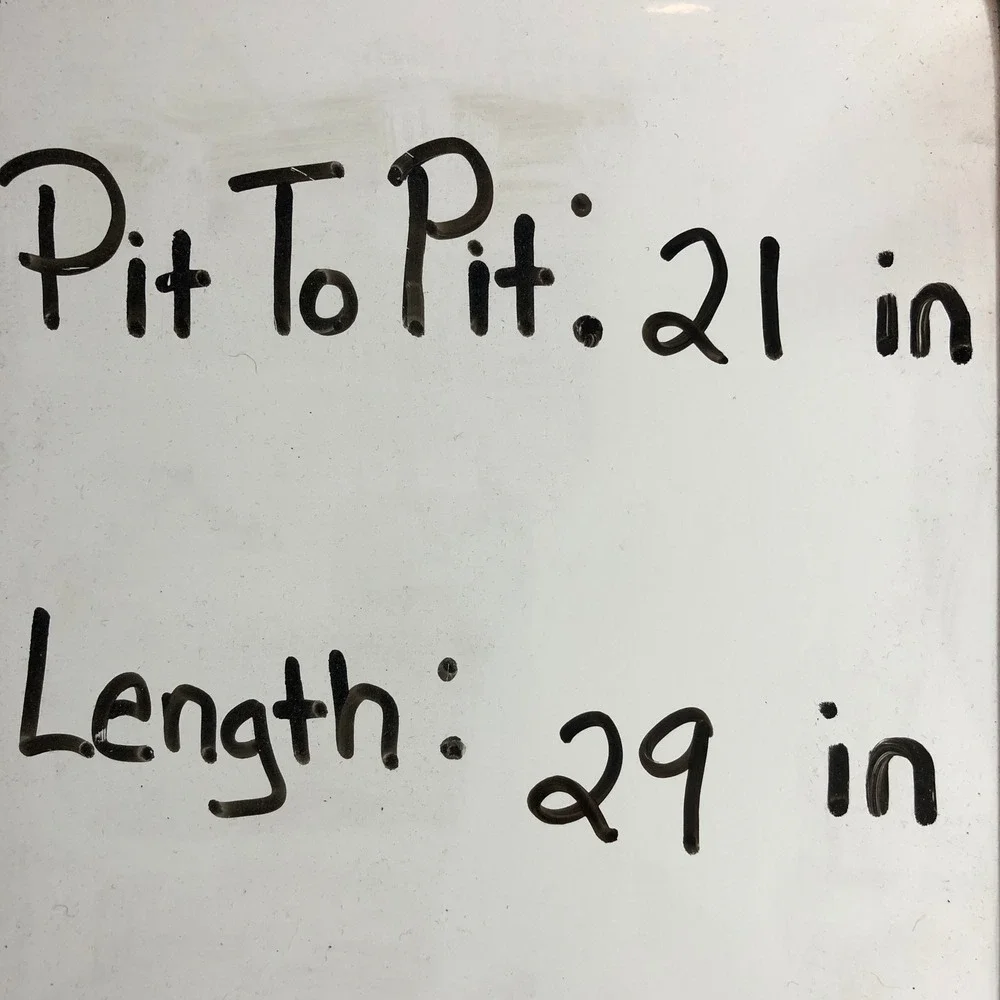 Pit To Pit: 21 in
Length: 29 in